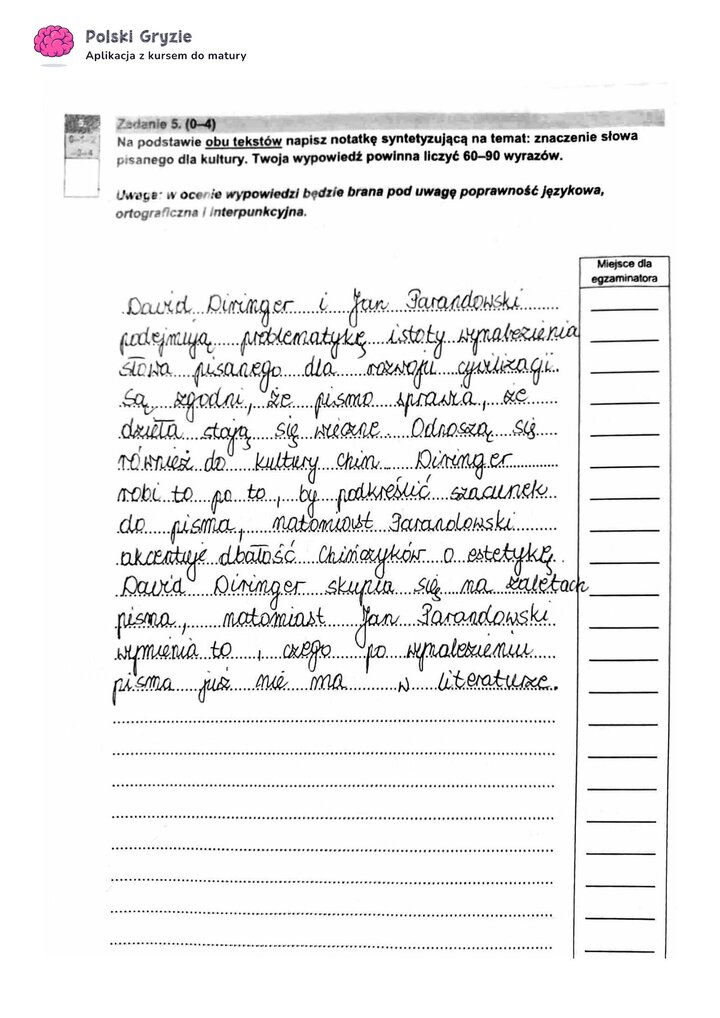 Polski Gryzie
Aplikacja z kursem do matury
Zadanie 5. (0–4)
Na podstawie obu tekstów napisz notatkę syntetyzującą na temat: znaczenie słowa
pisanego dla kultury. Twoja wypowiedź powinna liczyć 60–90 wyrazów.
Uwaga: w ocenie wypowiedzi będzie brana pod uwagę poprawność językowa,
ortograficzna i interpunkcyjna.
Miejsce dla
egzaminatora
David Diringer i Jan Parandowski
podejmują problematykę istoty wynalezienia
słowa pisanego dla rozwoju cywilizacji.
Są zgodni, że pismo sprawia, że
dzieła stają się wieczne. Odnoszą się
również do kultury Chin. Diringer
robi to po to, by podkreślić szacunek
do pisma, natomiast Parandowski
akcentuje dbałość Chińczyków o estetykę.
David Diringer skupia się na zaletach
pisma, natomiast Jan Parandowski
wymienia to, czego po wynalezieniu
pisma już nie ma w literaturze.